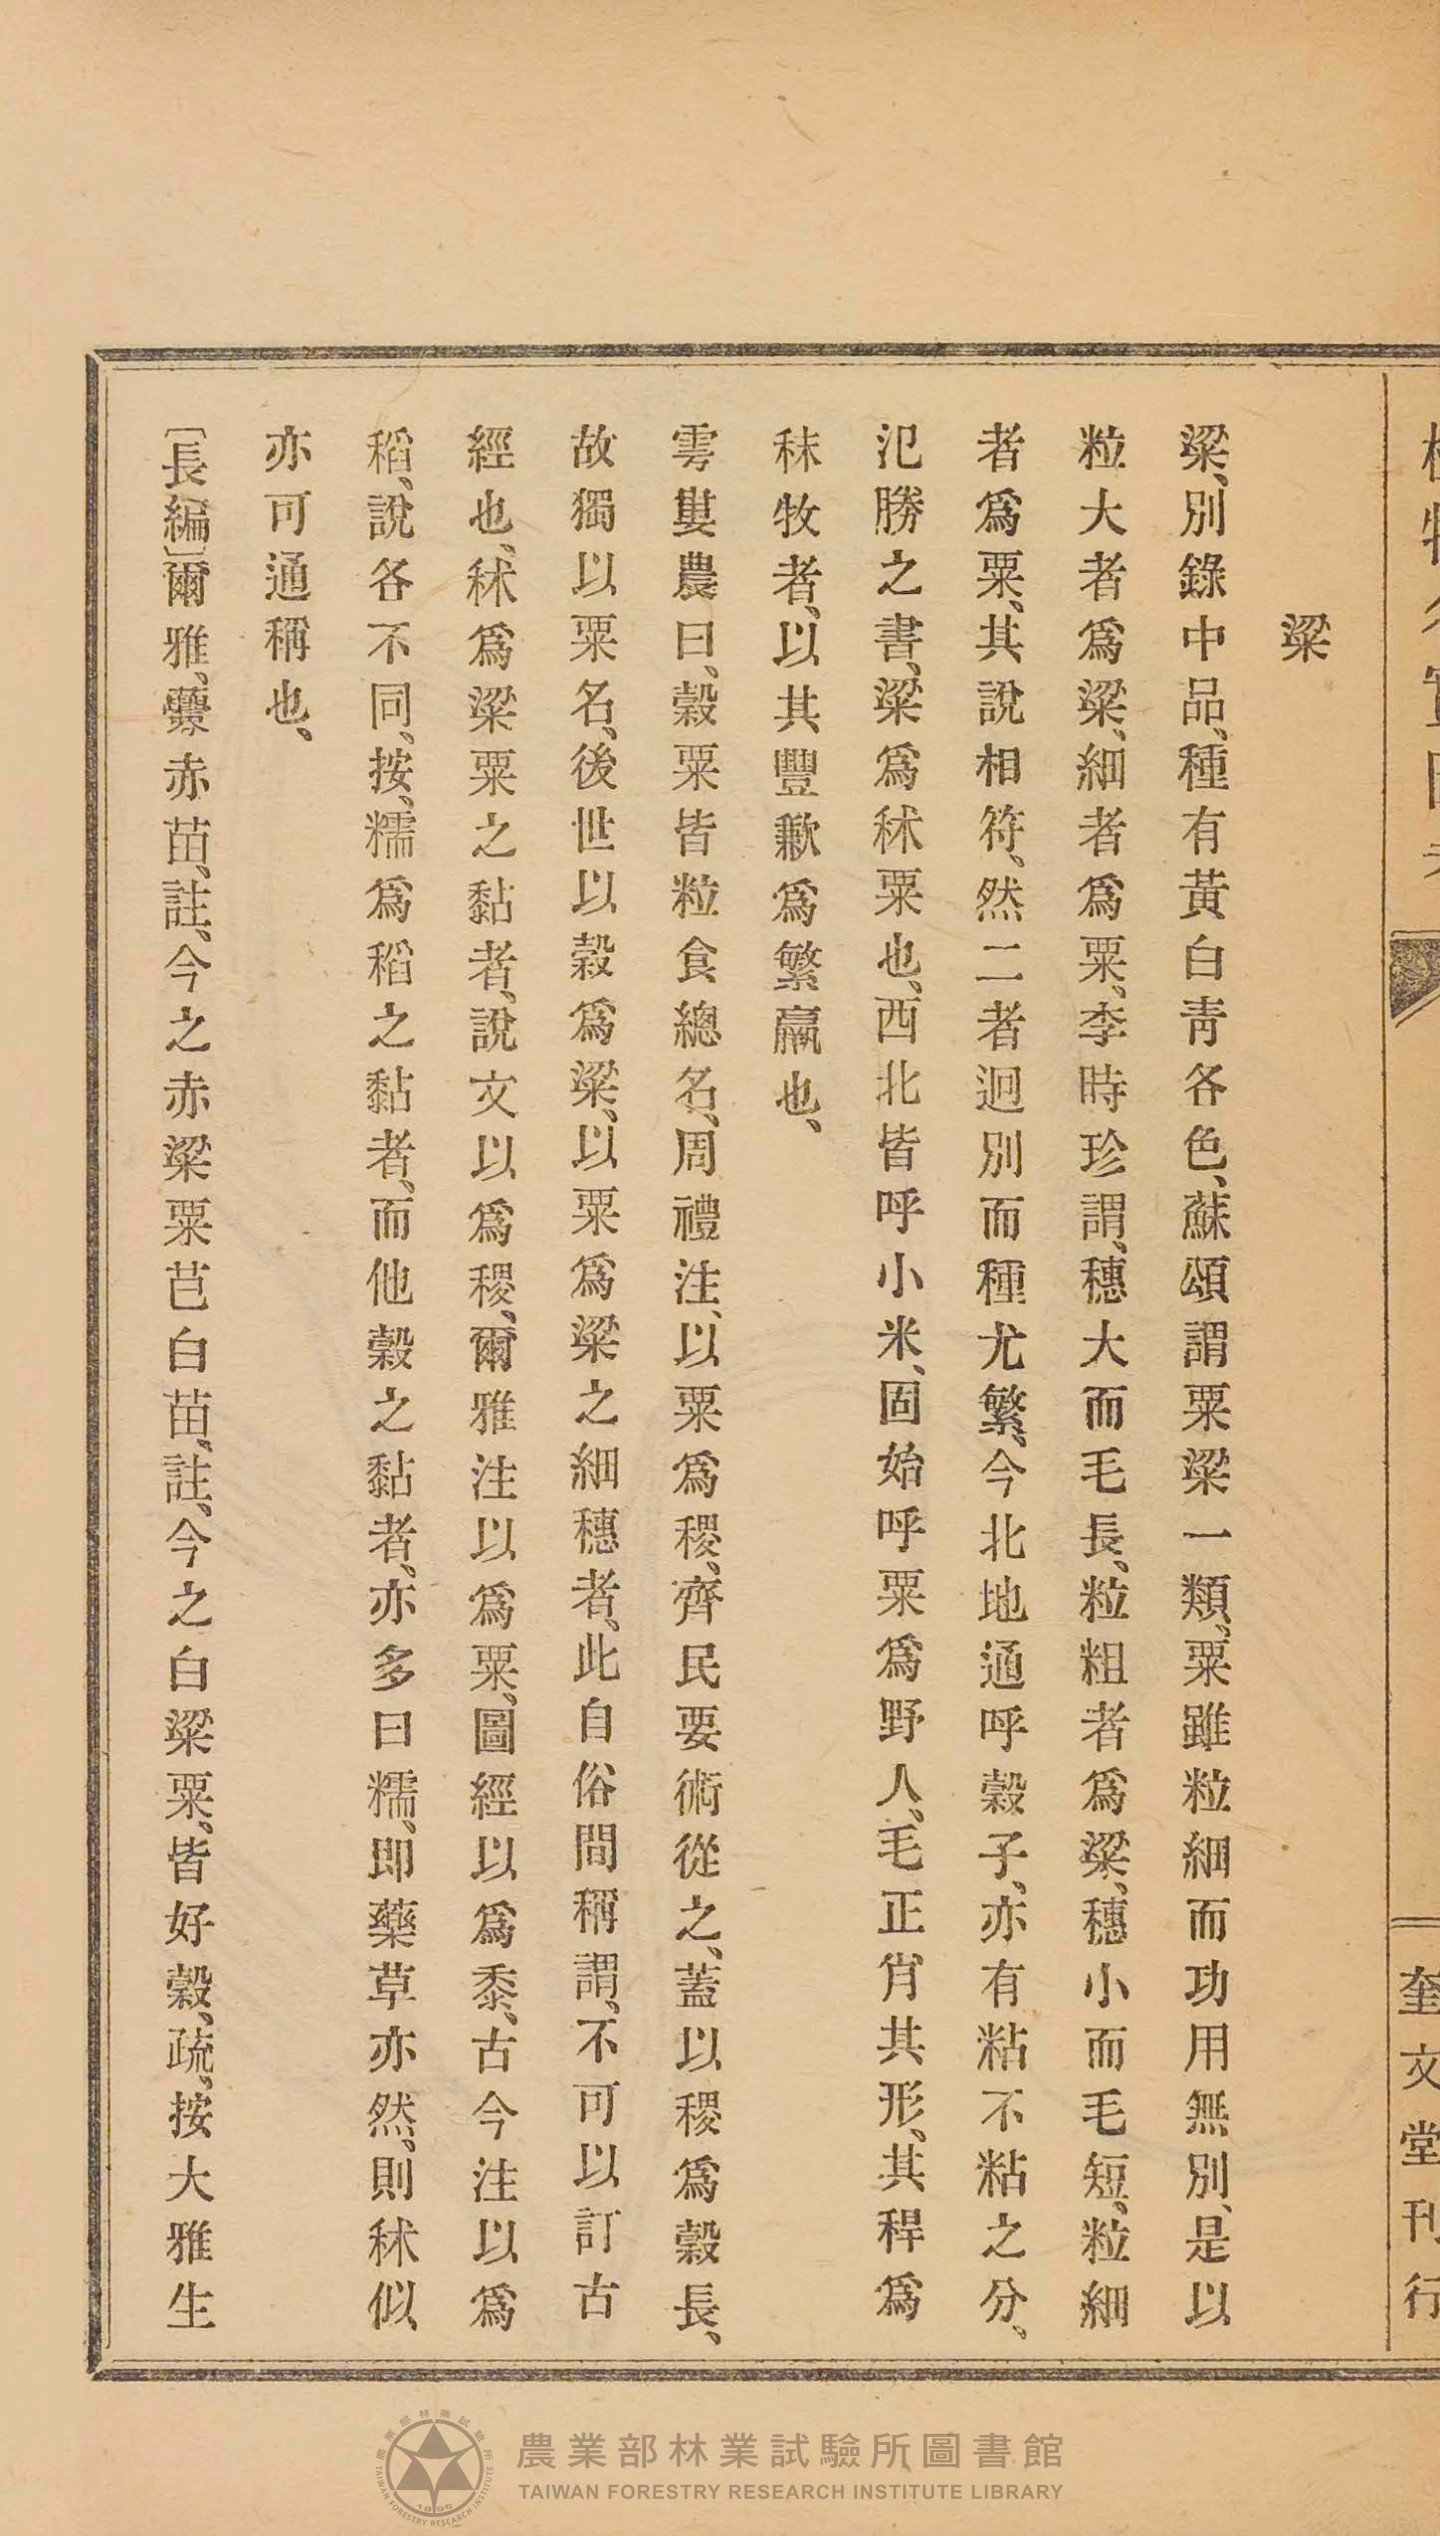 奎文堂刊行
粱
粱、別錄中品、種有黃白靑各色、蘇頌謂粟粱一類、粟雖粒細而功用無別、是以
粒大者爲粱、細者爲粟、李時珍謂、穗大而毛長、粒粗者爲粱、穗小而毛短、粒細
者爲粟、其說相符、然二者迥別而種尤繁、今北地通呼穀子、亦有粘不粘之分、
氾勝之書、粱爲秫粟也、西北皆呼小米、固始呼粟爲野人、毛正肖其形、其稈爲
秣牧者、以其豐歉爲繁羸也、
雩婁農曰、穀粟皆粒食總名、周禮注、以粟爲稷、齊民要術從之、蓋以稷爲穀長、
故獨以粟名、後世以穀爲粱、以粟爲粱之細穗者、此自俗間稱謂、不可以訂古
經也、秫爲粱粟之黏者、說文以爲稷、爾雅注以爲粟、圖經以爲黍、古今注以爲
稻、說各不同、按、糯爲稻之黏者、而他穀之黏者、亦多曰糯、即藥草亦然、則秫似
亦可通稱也、
〔長編〕爾雅、虋赤苗、註、今之赤粱粟芑白苗、註、今之白粱粟、皆好穀、疏、按大雅生
農業部林業試驗所圖書館
TAIWAN FORESTRY RESEARCH INSTITUTE LIBRARY
農業部林業試驗所
TAIWAN FORESTRY RESEARCH INSTITUTE
1896